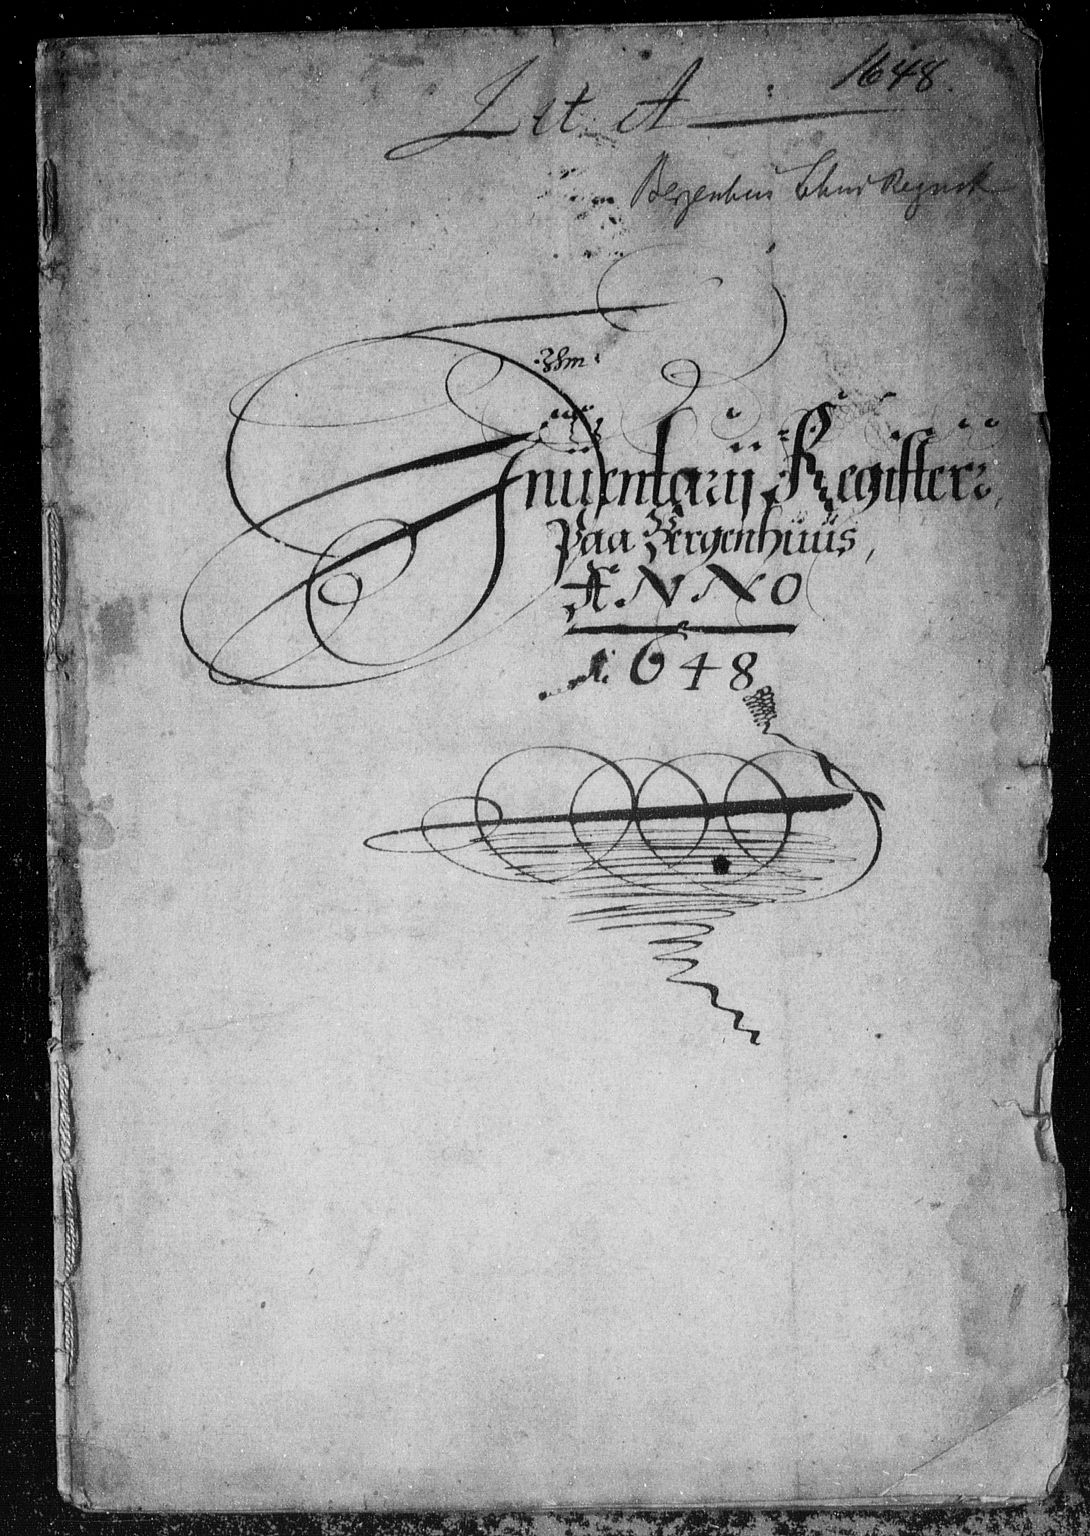 1648.
Let A
Bergenhus Lehns Regnsk
Inüentarij Register,
Paa Bergenhüüs,
ANNO
1648